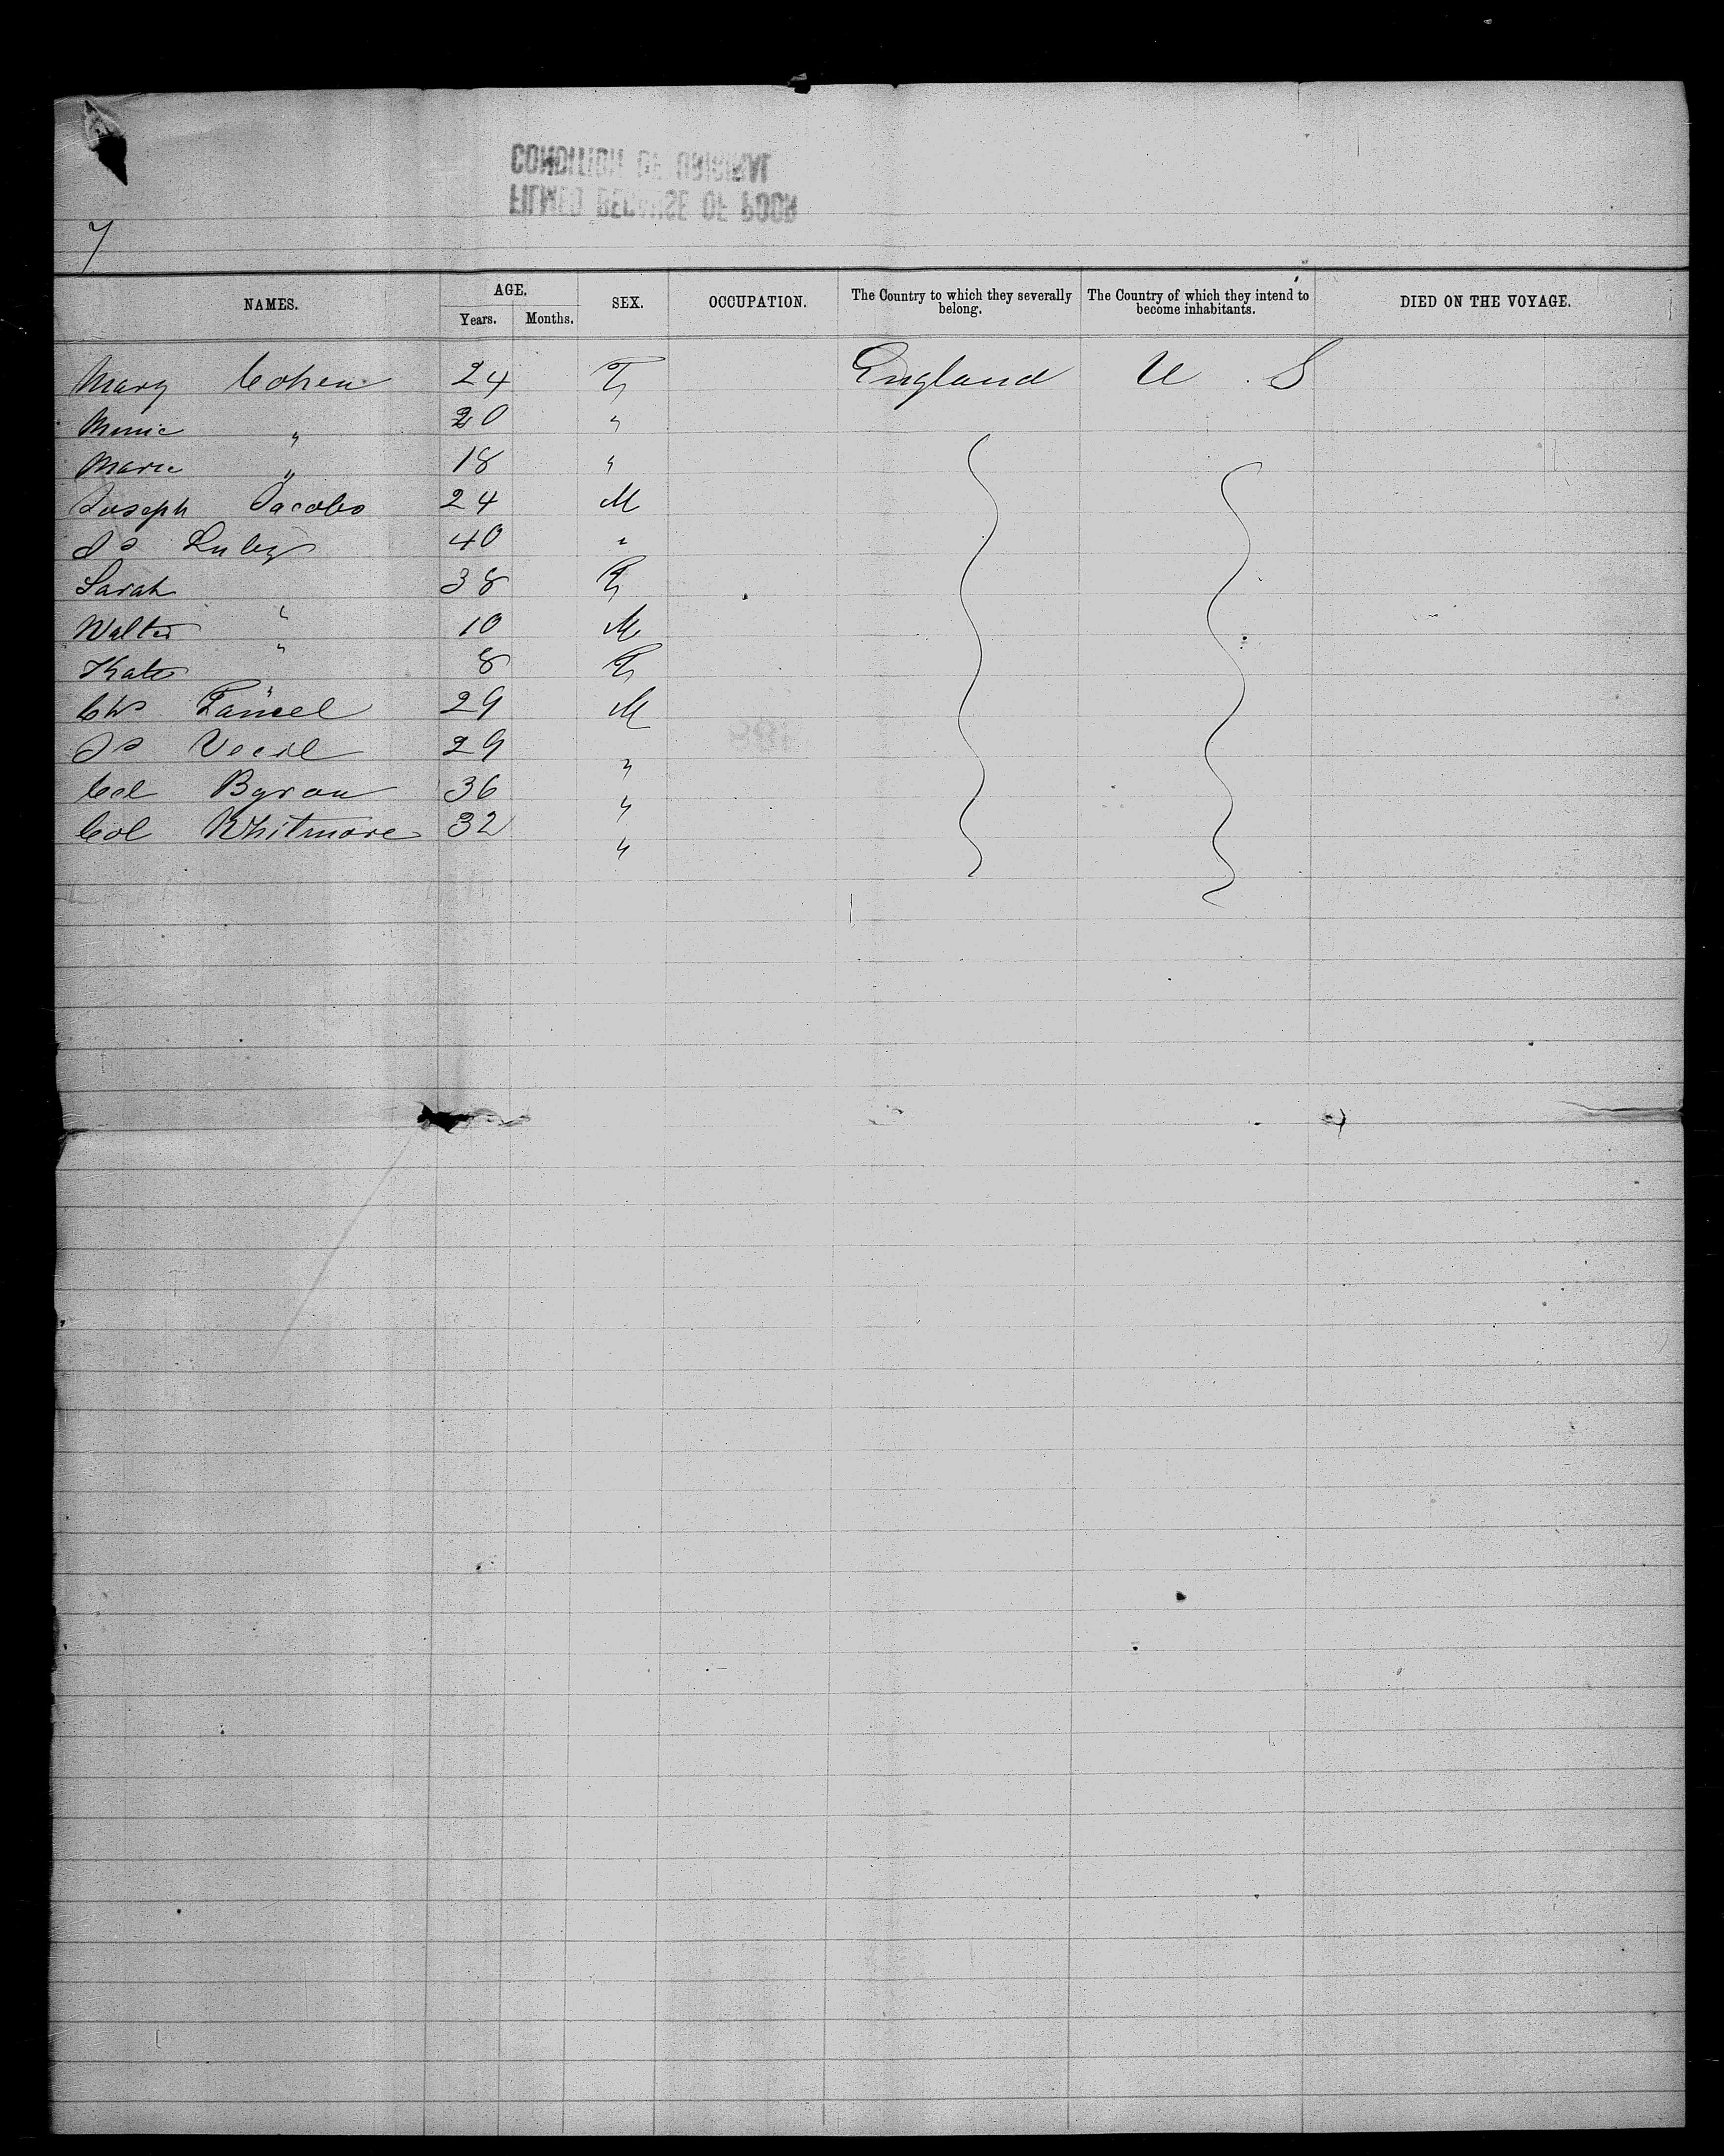 CONDITION OF ORIGINAL
FILMED BECAUSE OF POOR
7
NAMES. AGE. SEX. OCCUPATION. The Country to which they severally belong. The Country of which they intend to become inhabitants. DIED ON THE VOYAGE.
Years. Months.
Mary Cohen 24 F England U. S
Minie " 20 "
Marie " 18 "
Joseph Jacobs 24 M
Js Luby 40 "
Sarah " 38 F
Walter " 10 M
Kate " 8 F
Chs 29 M
Js 29 "
Col Byron 36 "
Col Whitmore 32 "